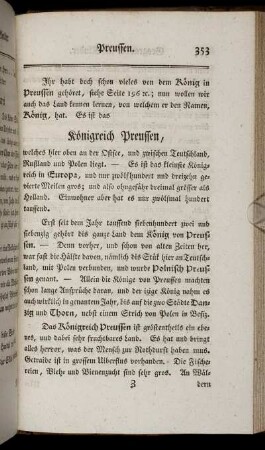 Preussen. 353
Ihr habt doch schon vieles von dem König in
Preussen gehöret, siehe Seite 196 ꝛc.; nun wollen wir
auch das Land kennen lernen, von welchem er den Namen,
König, hat. Es ist das
Königreich Preussen,
welches hier oben an der Ostsee, und zwischen Teutschland,
Rußland und Polen liegt. — Es ist das kleinste König-
reich in Europa, und nur zwölfhundert und dreizehn ge-
vierte Meilen gros; und also ohngefähr dreimal grösser als
Holland. Einwohner aber hat es nur zwölfmal hundert
tausend.
Erst seit dem Jahr tausend siebenhundert zwei und
siebenzig gehört dis ganze Land dem König von Preus-
sen. — Denn vorher, und schon von alten Zeiten her,
war fast die Hälfte davon, nämlich dis Stük hier an Teutsch-
land, mit Polen verbunden, und wurde Polnisch Preus-
sen genant. — Allein die Könige von Preussen machten
schon lange Ansprüche daran, und der izige König nahm es
auch wirklich in genantem Jahr, bis auf die zwo Städte Dan-
zig und Thorn, nebst einem Strich von Polen in Besiz.
Das Königreich Preussen ist gröstentheils ein ebe-
nes, und dabei sehr fruchtbares Land. Es hat und bringt
alles hervor, was der Mensch zur Nothdurft haben mus.
Getraide ist in grossem Ueberflus vorhanden. Die Fische-
reien, Vieh- und Bienenzucht sind sehr gros. An Wäl-
Z dern